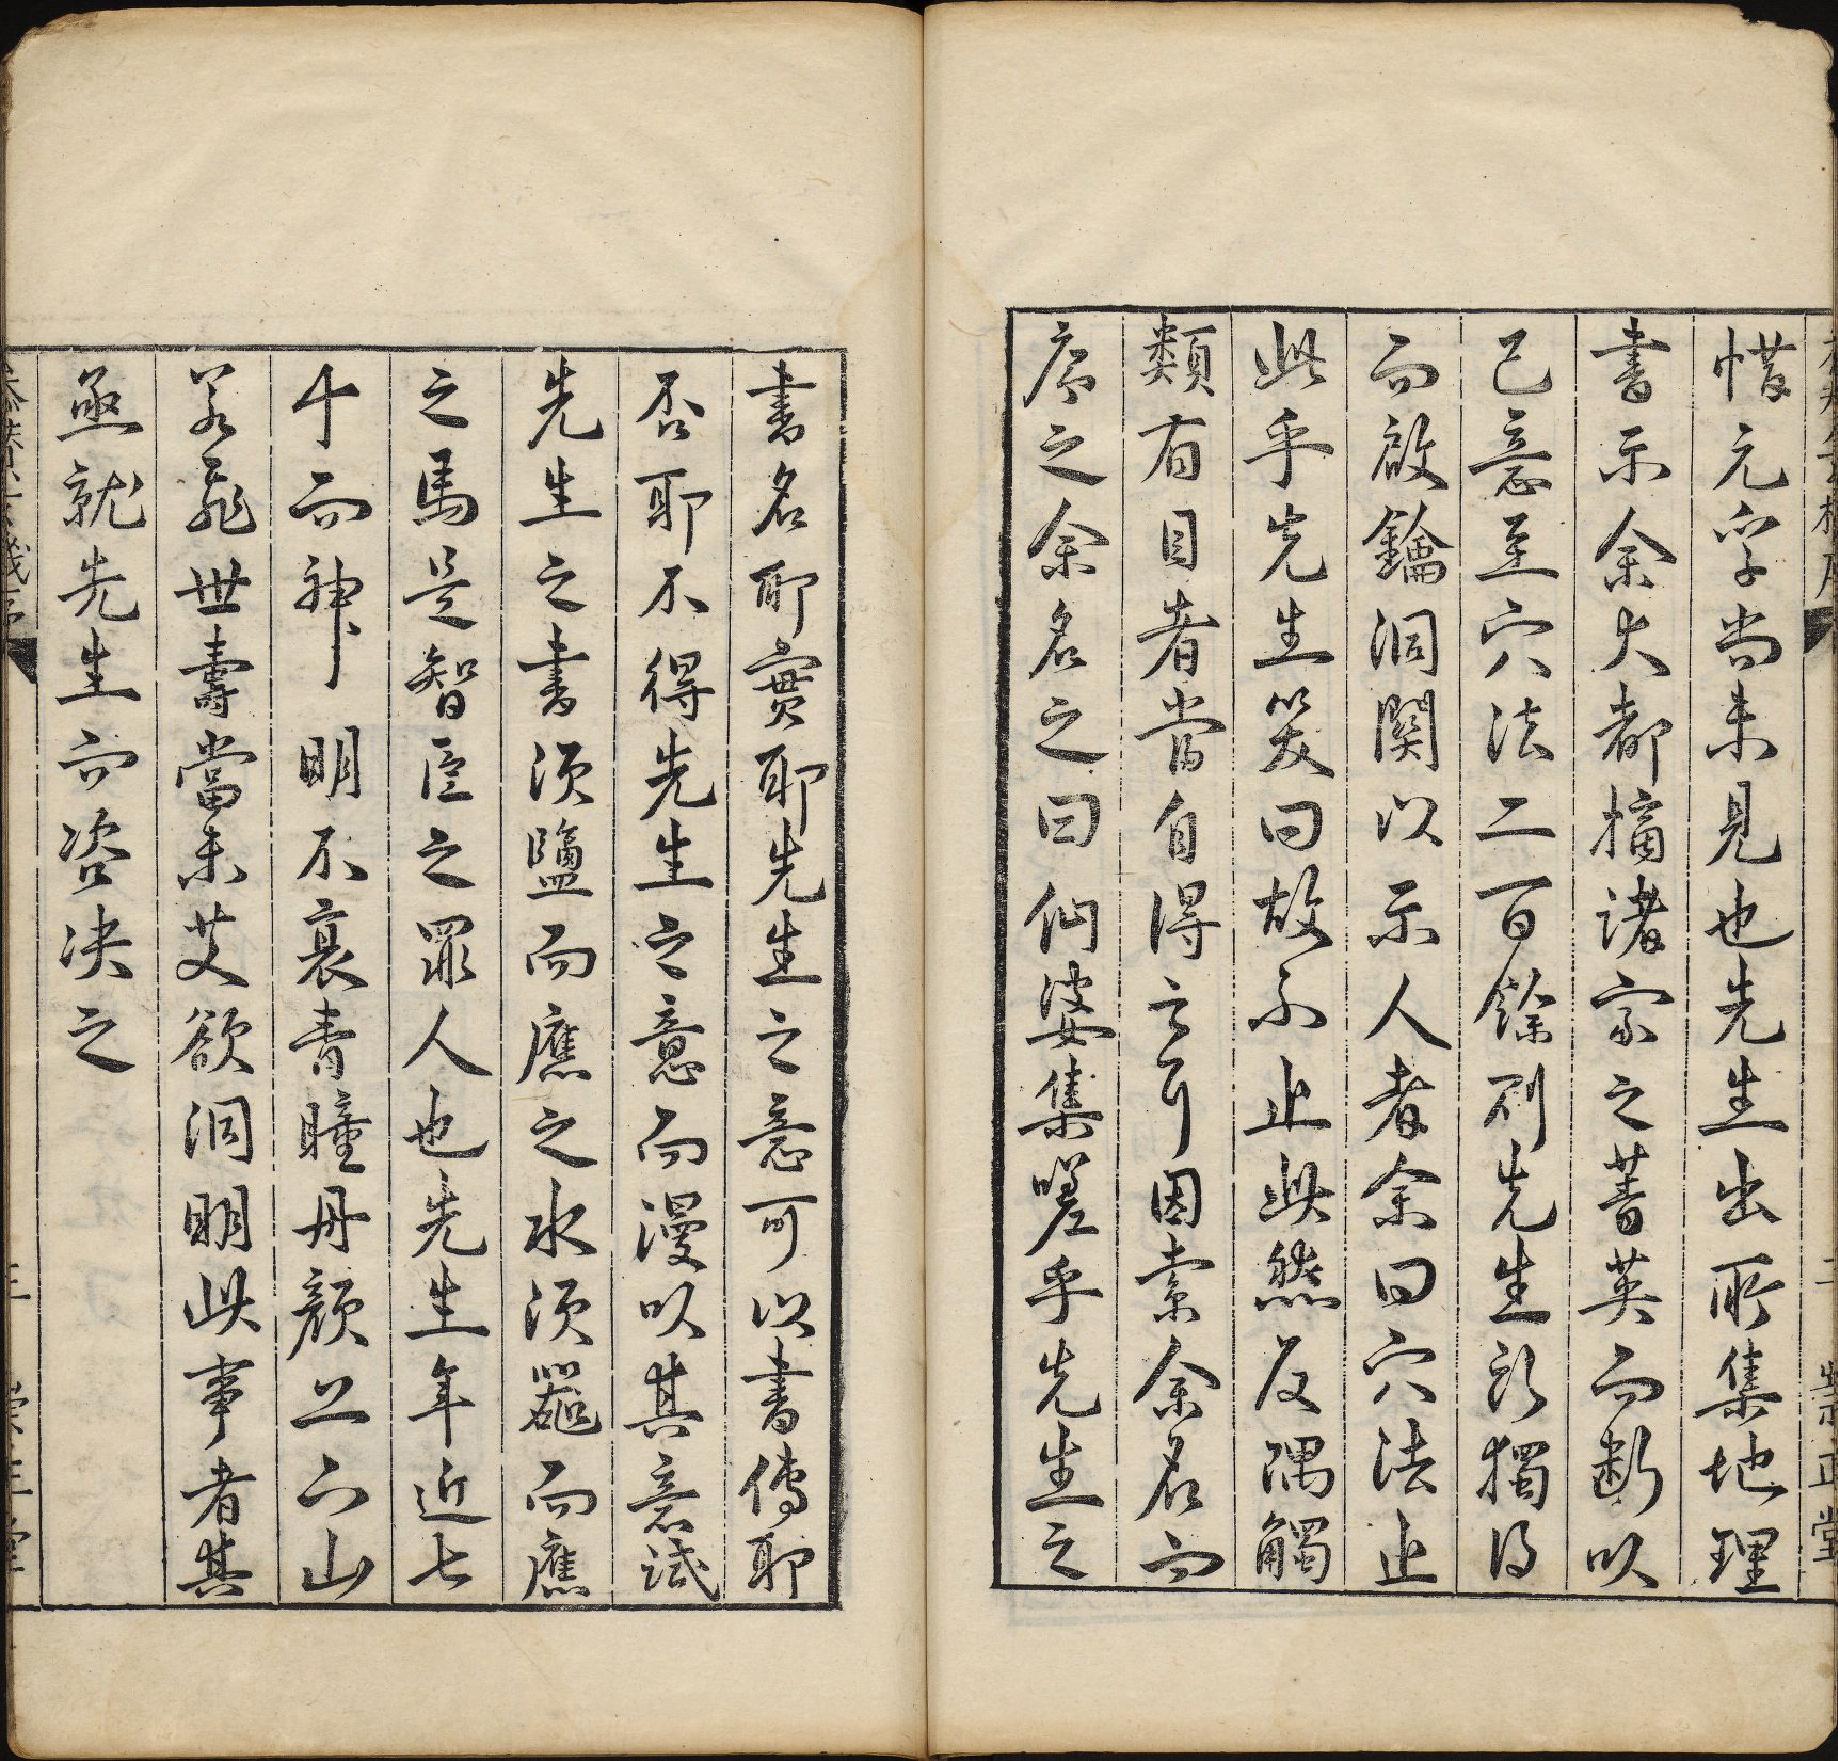 惜元孚尚未見也先生出所集地理
書示余大都摘諸家之菁英而斷以
己意至穴法二百餘則先生所獨得
而啟鑰洞關以示人者余曰穴法止
此乎先生笑曰故不止此然反隅觸
類有目者當自得之耳因索余名而
序之余名之曰仙婆集嗟乎先生之
書名耶實耶先生之意可以書傳耶
否耶不得先生之意而漫以其意試
先生之書須鹽而應之水須器而應
之馬是智臣之罪人也先生年近七
十而神明不衰青瞳丹顏上下山
若飛世壽當未艾欲洞明此事者其
亟就先生而咨決之